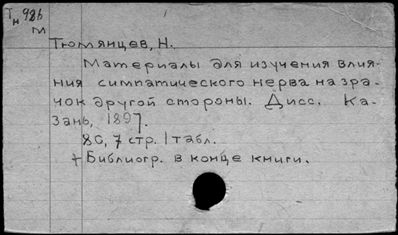 Тн 986
м
Тюмянцев, Н.
Материалы для изучения влия-
ния симпатического нерва на зра-
чок другой стороны. Дисс. Ка-
зань, 1897.
80, 7 стр. 1 табл.
+ Библиогр. в конце книги.